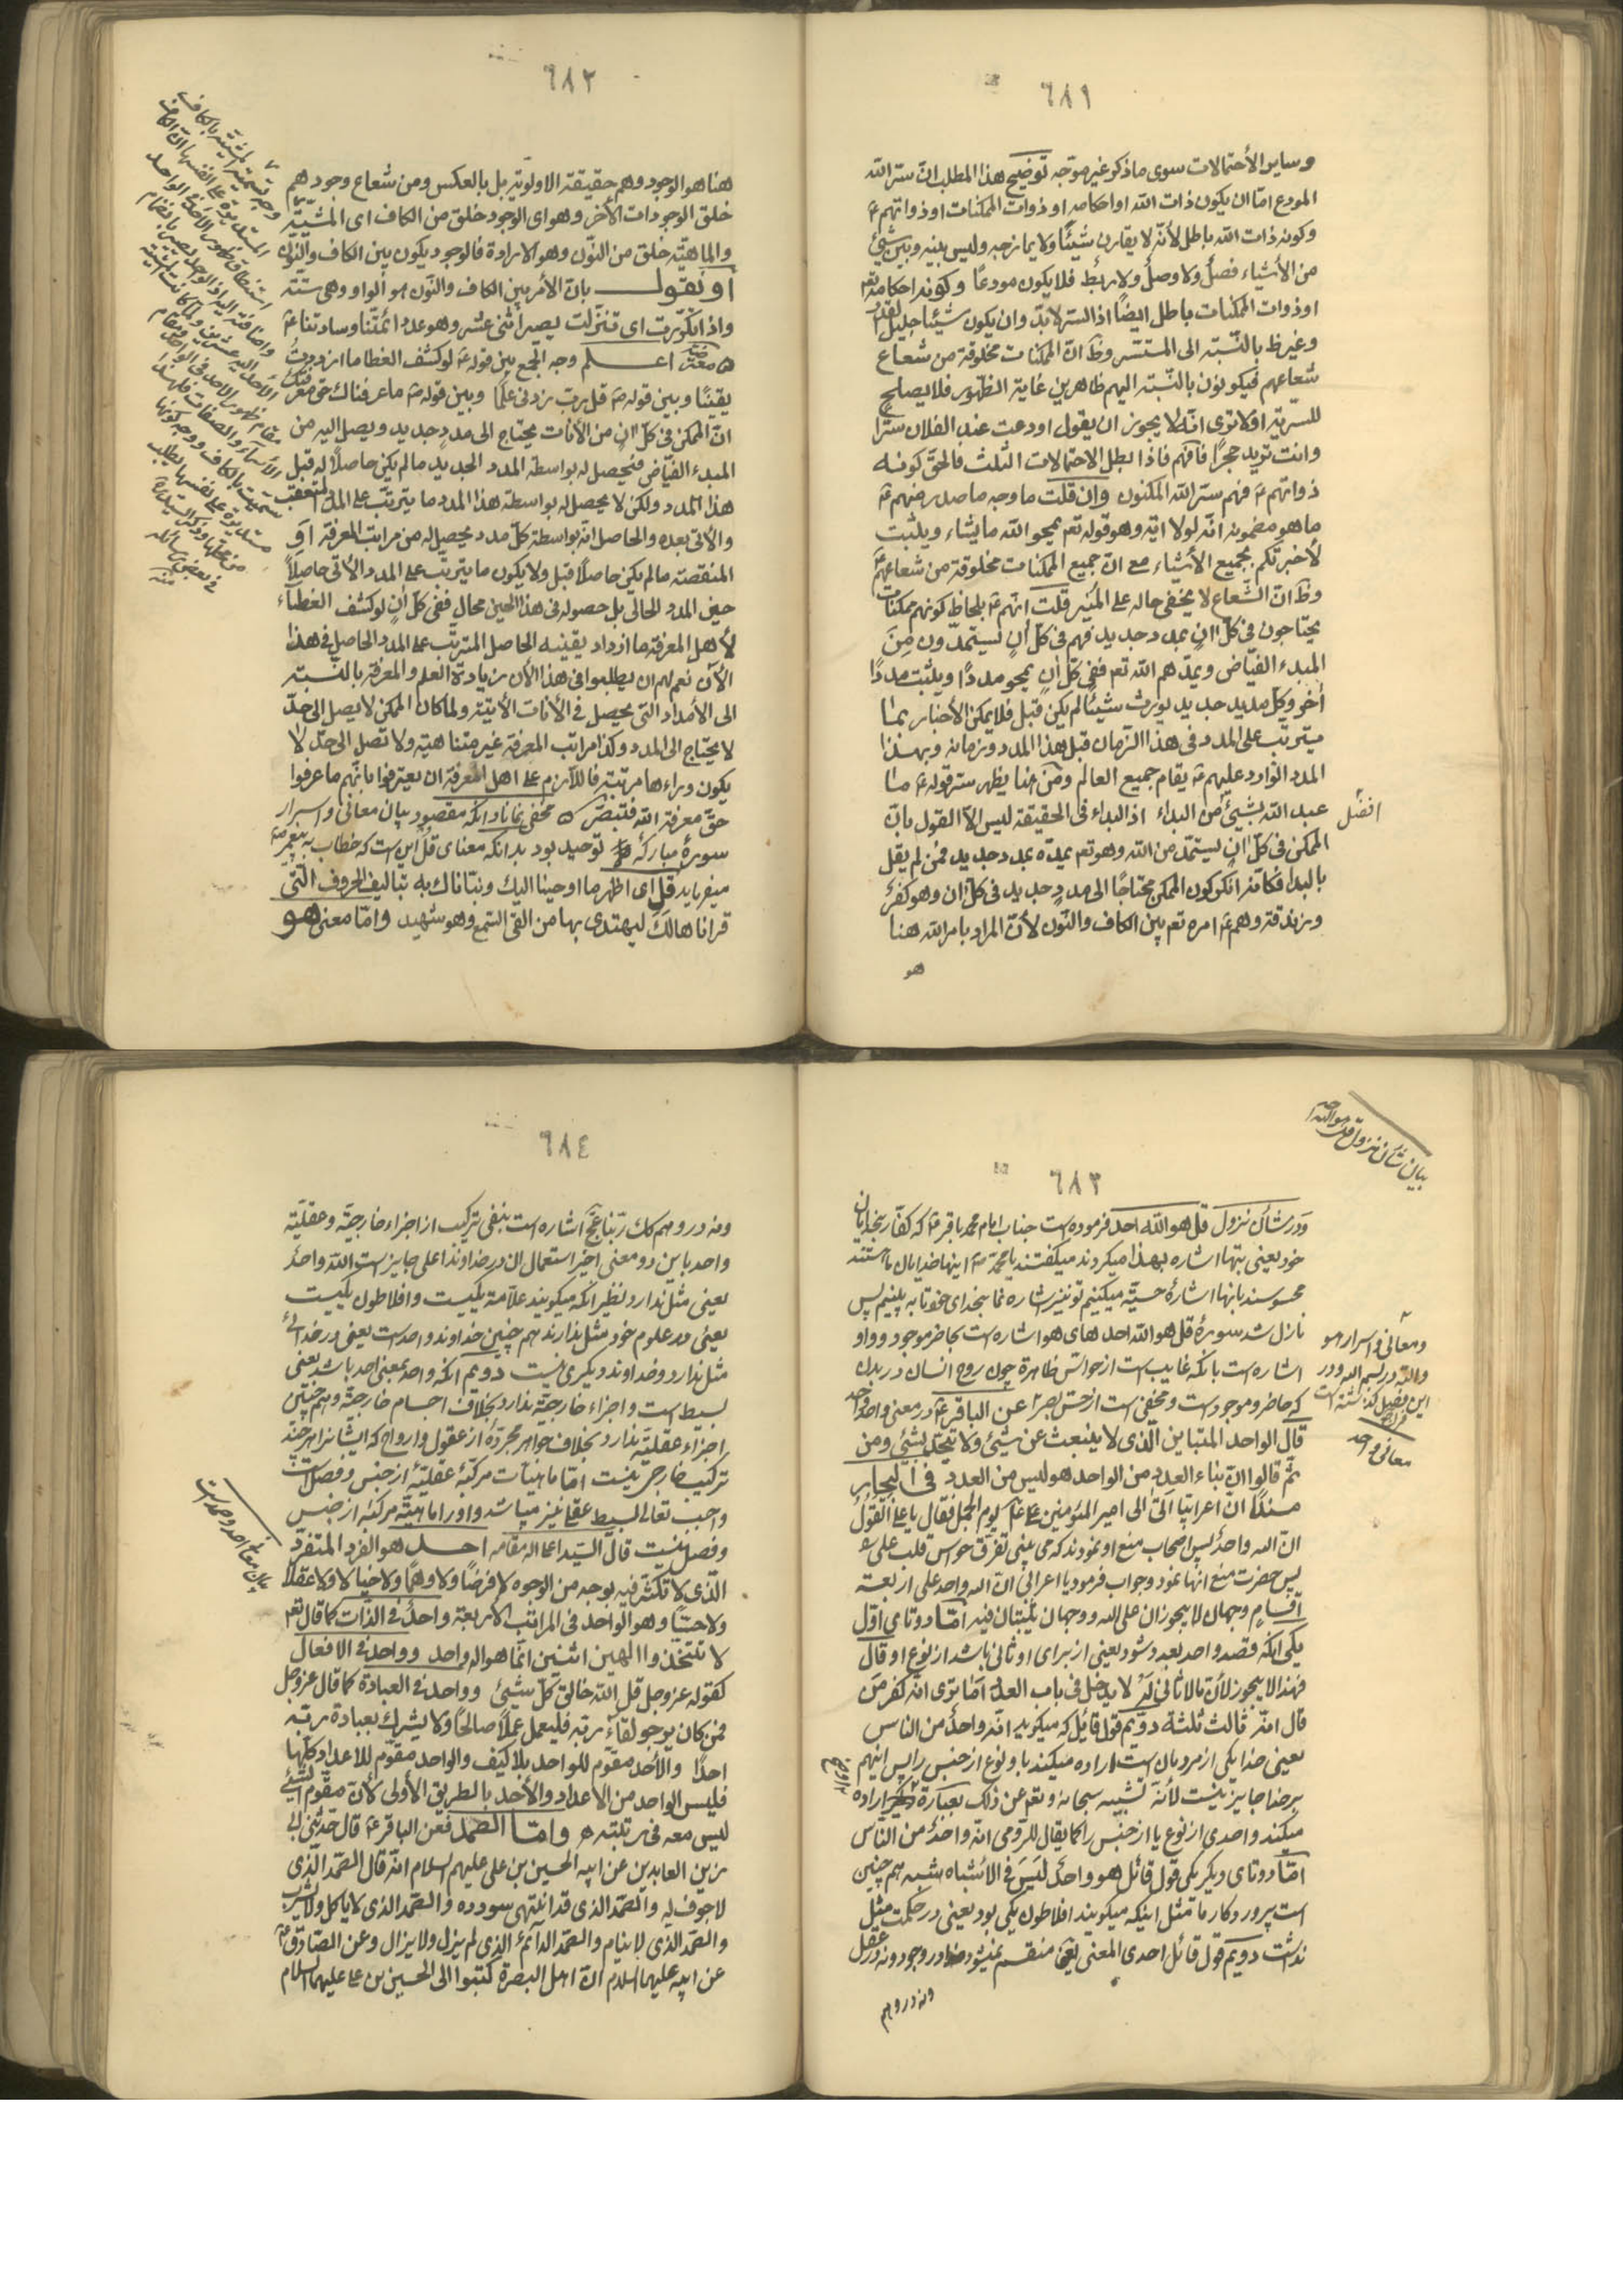 ٦٨١
وساير الأحتمالات سوى ما ذكر غير موجّه توضيح هذا المطلب انّ سرّ الله
المودع امّا ان يكون ذات الله او احكامه او ذوات الممكنات او ذواتهم ع
وكونه ذات الله باطل لأنّه لا يقارن شيئًا ولا يمازجه وليس بينه وبين شيئ
من الأشياء فصلٌ ولا وصلٌ ولا ربط فلا يكون مودعًا وكونه احكامه تعم
او ذوات الممكنات باطل ايضًا اذ السرّ لابدّ وان يكون شيئًا جليل القدر
وغير ظ بالنّسبته الى المستسر وظ انّ الممكنات مخلوقة من شعاع
شعاعهم فيكونون بالنّسبته اليهم ظاهرين غاية الظّهور فلا يصلح
للسريّة اولا ترى انّه لا يجوز ان يقول اودعت عند الفلان سترًا
وانت تريد حجرًا فافهم فاذا بطل الاحتمالات الثلث فالحقّ كونه
ذواتهم ع فهم سرّ الله المكنون وان قلت ما وجه ما صدر منهم ع
ما هو مضمونه انّه لولا اية وهو قوله تعم يمحو الله ما يشاء ويثبت
لأخبرتكم بجميع الأشياء مع انّ جميع الممكنات مخلوقة من شعاعهم ع
وظ انّ الشّعاع لا يخفى حاله على المنير قلت انّهم ع بلحاظ كونهم ممكنات
يحتاجون فى كلّ انٍ بمدد جديد فهم فى كلّ انٍ يستمدّون من
المبدء الفيّاض ويمدّهم الله تعم ففى كلّ انٍ يمحو مددًا ويثبت مددًا
أخر وكلّ مديد جديد يورث شيئًا لم يكن قبل فلا يمكن الأخبار بما
يترتب على المدد فى هذا الزمان قبل هذا المدد وزمانه وبهذا
المدد الوارد عليهم ع يقام جميع العالم ومن هنا يظهر ستر قوله ع ما
عبد الله بشيئ من البداء اذ البداء فى الحقيقة ليس الاّ القول بانّ
افضل
الممكن فى كلّ ان يستمدّ من الله وهو تعم يمدّه بمدد جديد فمن لم يقل
بالبدا فكانه انكر كون الممكن محتاجًا الى مددٍ جديد فى كلّ ان وهو كفر
وزندقة وهم ع امره تعم بين الكاف والنّون لأنّ المراد بامر الله هنا
هو
٦٨٢
هنا هو الوجود وهم حقيقته الاولويّة بل بالعكس ومن شعاع وجودهم
خلق الوجودات الأخر وهو اى الوجود خلق من الكاف اى المشيّة
والماهيّة خلق من النّون وهو الارادة فالوجود يكون بين الكاف والنّون
او نقول بانّ الأمر بين الكاف والنّون هو الواو وهى ستّة
واذا كرّرت اى تنزلت يصير اثنى عشر وهو عدد ائمّتنا وسادتنا ع
اعلم وجه الجمع بين قوله ع لو كشف الغطا ما ازددت
يقينًا وبين قوله ص قل ربّ زدنى علمًا وبين قوله ص ما عرفناك حق معرفتك
انّ الممكن فى كلّ انٍ من الأنات يحتاج الى مددٍ جديد ويصل اليه من
المبدء الفيّاض فيحصل له بواسطة المدد الجديد ما لم يكن حاصلًا له قبل
هذا المدد ولكن لا يحصل له بواسطة هذا المدد ما يترتّب على المدد المتعقب
والأتى بعده والحاصل انّه بواسطة كلّ مدد يحصل له من مراتب المعرفة او
المنقصته ما لم يكن حاصلًا قبل ولا يكون ما يترتّب على المدد الأتى حاصلًا
حين المدد الحالى بل حصوله فى هذا الحين محال ففى كلّ انٍ لو كشف الغطاء
لأهل المعرفة ما ازداد يقينه الحاصل المترتّب على المدد الحاصل فى هذا
الأن نعم لهم ان يطلبوا فى هذا الأن زيادة العلم والمعرفة بالنّسبته
الى الأمداد التى يحصل فى الأنات الأتية ولما كان الممكن لا يصل الى حدّ
لا يحتاج الى المدد وكذا مراتب المعرفة غير متناهية ولا تصل الى حدّ لا
يكون وراءها مرتبته فاللّازم على اهل المعرفة ان يعترفوا بانّهم ما عرفوا
حقّ معرفة الله فتبصّر مخفى نماناد انكه مقصود بيان معانى واسرار
سورهٔ مباركهٔ توحيد بود بدانكه معناى قل اين است كه خطاب به پيغمبر ص
ميفرمايد قل اى اظهر ما اوحينا اليك ونبّاناك به بتاليف الحروف التى
قراناها لك ليهتدى بها من القى السّمع وهو شهيد وامّا معنى هو
٦٨٣
بيان شأن نزول قل هو الله احد
ودر شأن نزول قل هو الله احد فرموده است جناب امام محمد باقر ع كه كفّار بخدايان
خود يعنى بتها اشاره بهذا ميكردند ميگفتند يا محمد ص اينها خدايان ما هستند
محسوسند بانها اشارهٔ حسيّه ميكنيم تو نيز اشاره نما بخداى خود تا به بينيم پس
نازل شد سورهٔ قل هو الله احد هاى هو اشاره است بحاضر موجود وواو
اشاره است بانكه غايب است از حواسّ ظاهره چون روح انسان در بدن
كه حاضر وموجود است ومخفى است از حسّ بصر عن الباقر ع در معنى واحد
قال الواحد المتباين الّذى لا ينبعث عن شيئ ولا يتّحد بشيئ ومن
ثمّ قالوا انّ بناء العدد من الواحد وليس من العدد فى البحار
مسندًا انّ اعرابيًا اتى الى امير المؤمنين ع يوم الجمل فقال يا على اتقول
انّ الله واحدٌ پس اصحاب منع او نمودند كه مى بينى تفرّق حواس قلب على
پس حضرت منع انها نمود وجواب فرمود يا اعرابى انّ الله واحد على اربعة
اقسام وجهان لا يجوزان على الله ووجهان يثبتان فيه امّا دوتاى اوّل
يكى انكه قصد واحد بعدد شود يعنى از براى او ثانى باشد از نوع او قال
فهذا لا يجوز لأنّ ما لا ثانى له لا يدخل فى باب العدد امّا ترى انّه كفر من
قال انّه ثالث ثلثة دويم قول قائل كه ميگويد انّه واحدٌ من الناس
يعنى خدا يكى از مردمان است اراده ميكند باو نوع از جنس را پس اينهم
بر خدا جايز نيست لأنّه تشبيه سبحانه وتعم عن ذلك بعبارة اراده
ميكند واحدى از نوع يا از جنس را كما يقال للرّومى انّه واحدٌ من النّاس
امّا دوتاى ديگر يكى قول قائل هو واحدٌ ليس فى الأشباه شبيه هم چنين
است پروردگار ما مثل اينكه ميگويند افلاطون يكى بود يعنى در حكمت مثل
نداشت دويم قول قائل احدى المعنى يعنى منقسم نميشود در وجود ونه در عقل
ونه در وهم
ومعانى واسرار هو
والله در بسم الله ودر
اين تفصيل گذشته است
معانى واحد
٦٨٤
ونه در وهم كك ربّنا عجّ اشاره است بنفى تركيب از اجزاء خارجيّة وعقليّة
واحد باين دو معنى اخير استعمال ان در خداوند اعلى جايز است الله واحد
يعنى مثل ندارد نظير انكه ميگويند علاّمة يكيست وافلاطون يكيست
يعنى در علوم خود مثل ندارند هم چنين خداوند واحد است يعنى در خدائى
مثل ندارد وخداوند ديگرى نيست دويم انكه واحد بمعنى احد باشد يعنى
بسيط است واجزاء خارجيّة ندارد بخلاف اجسام خارجيّة وهم چنين
اجزاء عقليّة ندارد بخلاف جواهر مجرّده از عقول وارواح كه ايشانرا هر چند
تركيب خارجى نيست امّا ماهيّات مركّبهٔ عقليّه از جنس وفصل است
واجب تعالى بسيط عقلى نيز ميباشد واو را ماهيّة مركّبه از جنس
وفصل نيست قال السّيد اعلا الله مقامه احد هو الفرد المتفرّد
الّذى لا تكثّر فيه بوجه من الوجوه لا فرضًا ولا وهمًا ولا خيالًا ولا عقلًا
ولا حسًّا وهو الواحد فى المراتب الاربعة واحدٌ فى الذات كما قال تعم
لا تتّخذوا الهين اثنين انّما هو اله واحد وواحد فى الافعال
كقوله عزّ وجل قل الله خالق كلّ شيئ وواحد فى العبادة كما قال عزّ وجل
فمن كان يرجو لقاء ربّه فليعمل عملًا صالحًا ولا يشرك بعبادة ربّه
احدًا والأحد مقوّم للواحد بلا كيف والواحد مقوّم للاعداد كلّها
فليس الواحد من الأعداد والأحد بالطريق الأولى لأنّ مقوّم الشيئ
ليس معه فى رتبته وامّا الصّمد فعن الباقر ع قال حدّثنى ابى
زين العابدين عن ابيه الحسين بن على عليهم السلام انّه قال الصّمد الّذى
لا جوف له والصّمد الذى قد انتهى سودده والصّمد الذى لا ياكل ولا يشرب
والصّمد الذى لا ينام والصّمد الدائم الّذى لم يزل ولا يزال وعن الصّادق ع
عن ابيه عليهما السلام انّ اهل البصرة كتبوا الى الحسين بن على عليهما السلام
بيان معانى احد وصمد است